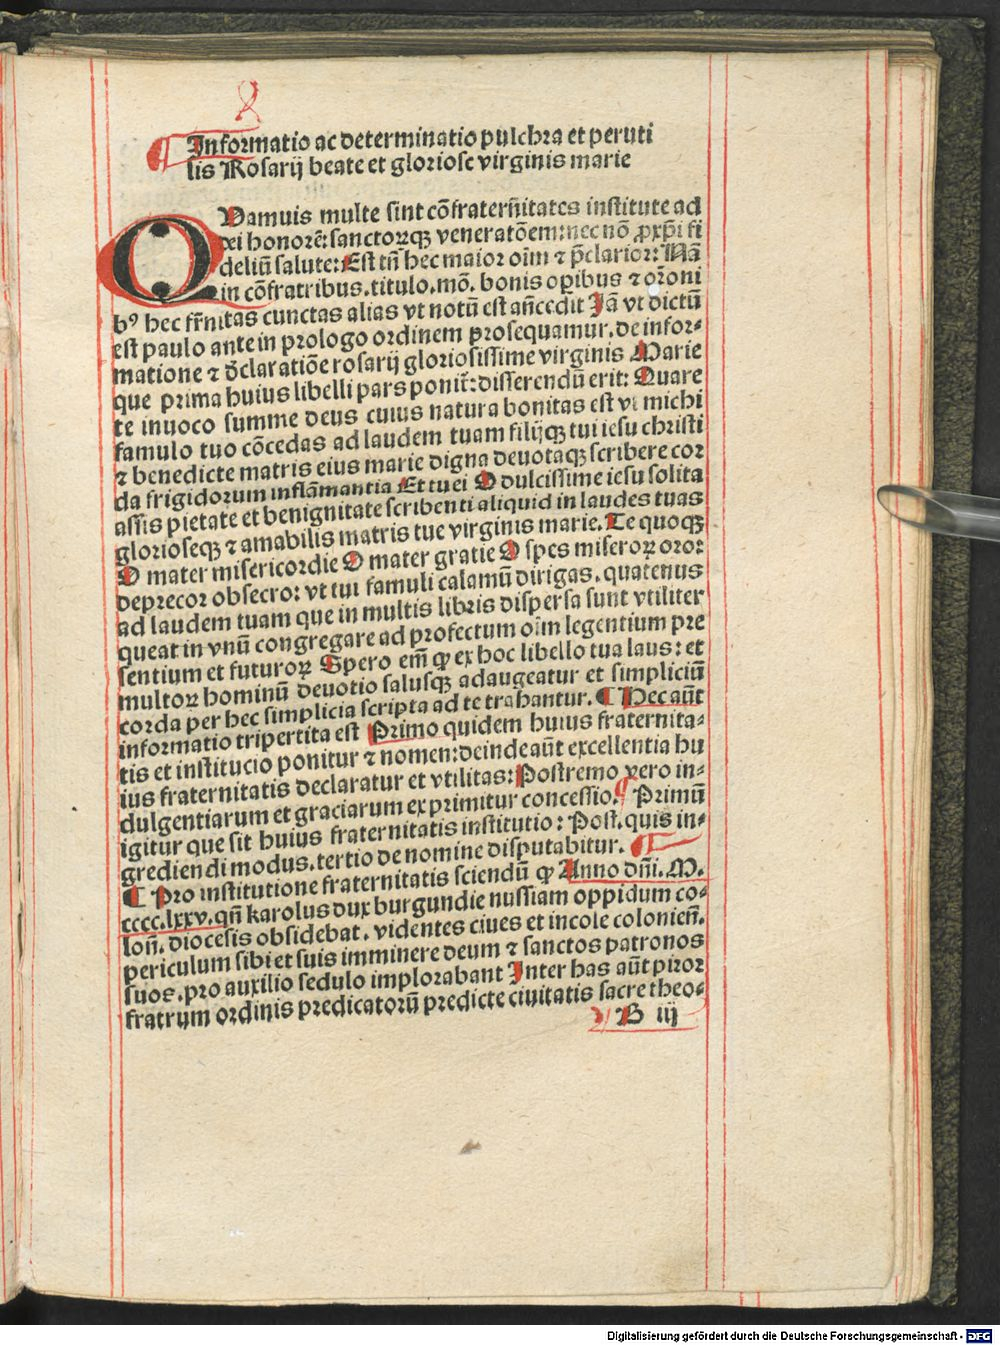 8
¶ Informatio ac determinatio pulchra et peruti
lis Rosarij beate et gloriose virginis marie
QVamuis multe sint cōfraterñitates institute ad
dei honorē: sanctorūqꝫ veneratōem: nec nō ꝓxp̄i fi
deliū salute: Est tñ hec maior oīm ⁊ p̄clarior: Nā
in cōfratribus. titulo. mō. bonis oꝑibus ⁊ or̄oni
bꝰ hec fr̄nitas cunctas alias vt notū est añcedit Iā vt dictū
est paulo ante in prologo ordinem prosequamur. de infor⸗
matione ⁊ d̄claratiōe rosarij gloriosissime virginis Marie
que prima huius libelli pars ponit̄: disserendū erit: Quare
te inuoco summe deus cuius natura bonitas est vt michi
famulo tuo cōcedas ad laudem tuam filijqꝫ tui iesu christi
⁊ benedicte matris eius marie digna deuotaqꝫ scribere cor
da frigidorum inflāmantia Et tu ei O dulcissime iesu solita
assis pietate et benignitate scribenti aliquid in laudes tuas
glorioseqꝫ ⁊ amabilis matris tue virginis marie. Te quoqꝫ
O mater misericordie O mater gratie O spes miseroꝝ oro:
deprecor obsecro: vt tui famuli calamū dirigas. quatenus
ad laudem tuam que in multis libris dispersa sunt vtiliter
queat in vnū congregare ad profectum oīm legentium pre
sentium et futuroꝝ Spero em̄ ꝙ ex hoc libello tua laus: et
multoꝝ hominū deuotio salusqꝫ adaugeatur et simpliciū
corda per hec simplicia scripta ad te trahantur. ¶ Hec aūt
informatio tripertita est Primo quidem huius fraternita⸗
tis et institucio ponitur ⁊ nomen: deinde aūt excellentia hu
ius fraternitatis declaratur et vtilitas: Postremo vero in⸗
dulgentiarum et graciarum exprimitur concessio. ¶ Primū
igitur que sit huius fraternitatis institutio: Post. quis in⸗
grediendi modus. tertio de nomine disputabitur.
¶ Pro institutione fraternitatis sciendū ꝙ Anno dñi. M.
cccc.lxxv. qñ karolus dux burgundie nussiam oppidum co⸗
loñ. diocesis obsidebat. videntes ciues et incole colonieñ.
periculum sibi et suis imminere deum ⁊ sanctos patronos
suos. pro auxilio sedulo implorabant Inter has aūt prior
fratrum ordinis predicatorū predicte ciuitatis sacre theo⸗
B iij
Digitalisierung gefördert durch die Deutsche Forschungsgemeinschaft - DFG